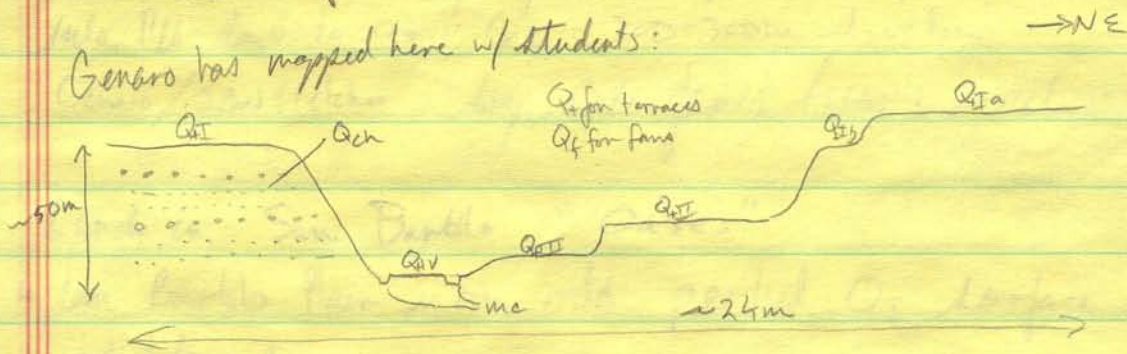 →NE
Genaro has mapped here w/ students:
Qt for terraces
Qf for fans
QtI
Qch
QtIb
QtIa
~50m
QtII
QtIII
QtIV
mc
~24m